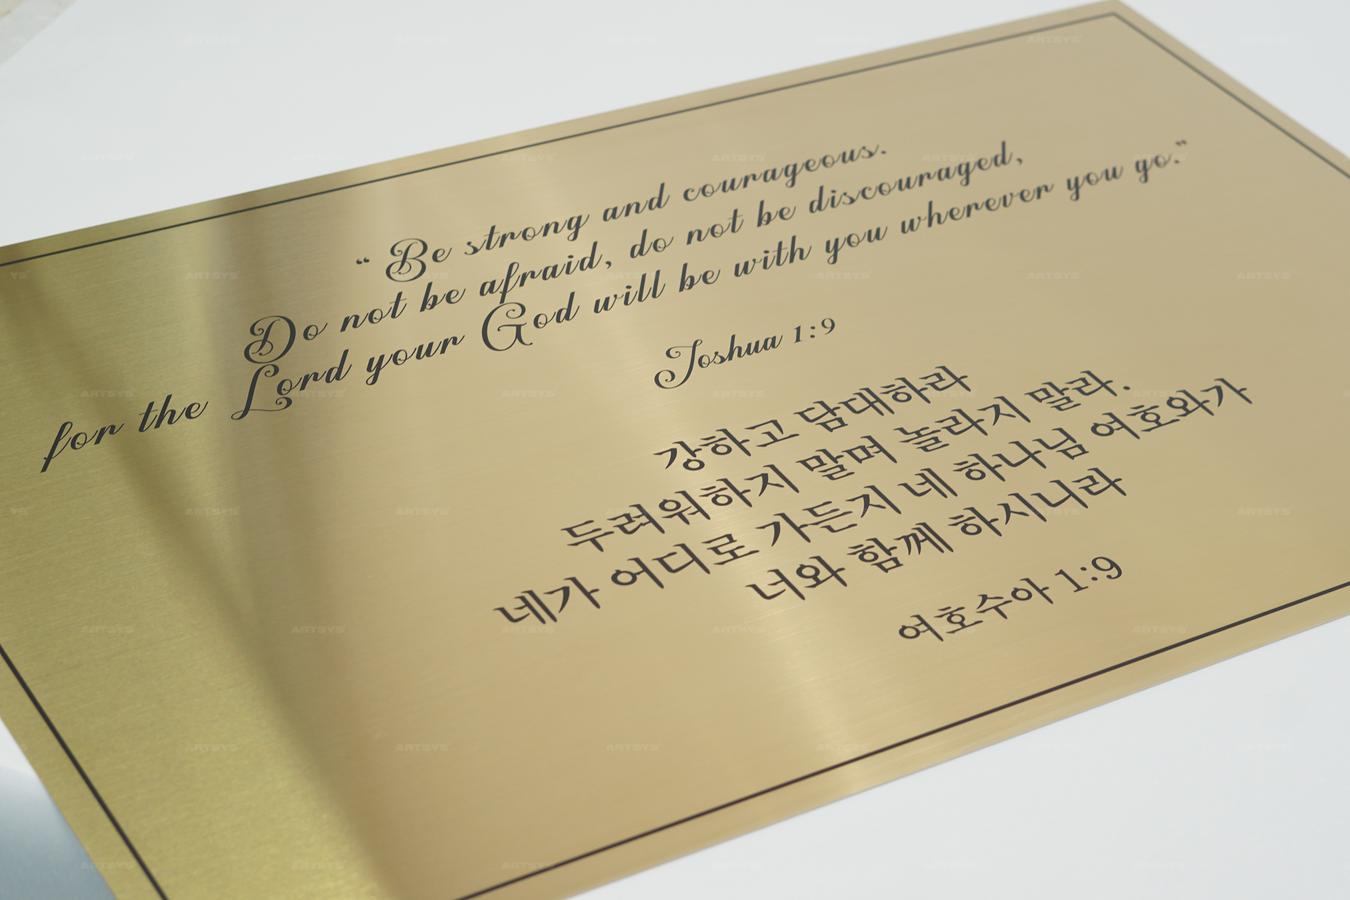 “ Be strong and courageous.
Do not be afraid, do not be discouraged,
for the Lord your God will be with you wherever you go.”
Joshua 1:9
강하고 담대하라
두려워하지 말며 놀라지 말라.
네가 어디로 가든지 네 하나님 여호와가
너와 함께 하시니라
여호수아 1:9
ARTSYS